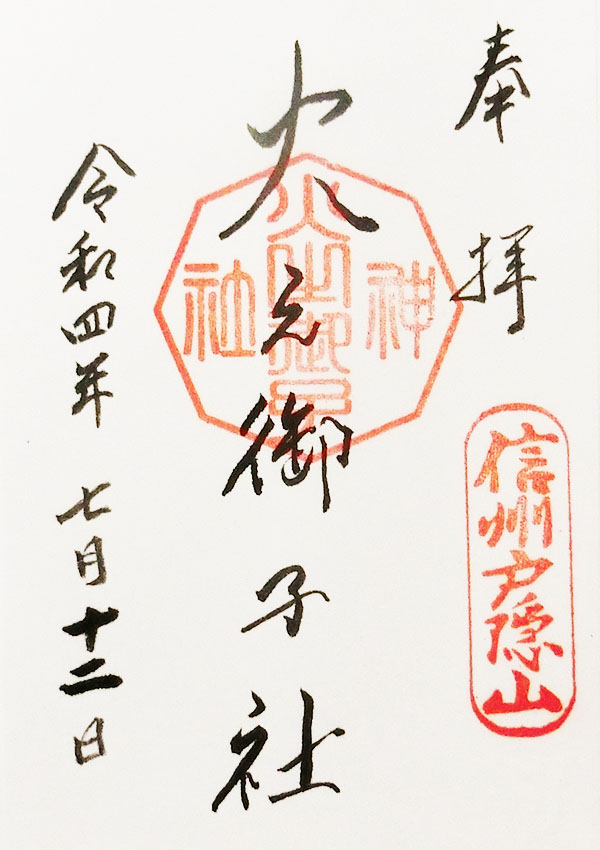 奉拝
信州戸隠山
火之御子社
神
火之御子
社
令和四年 七月十二日